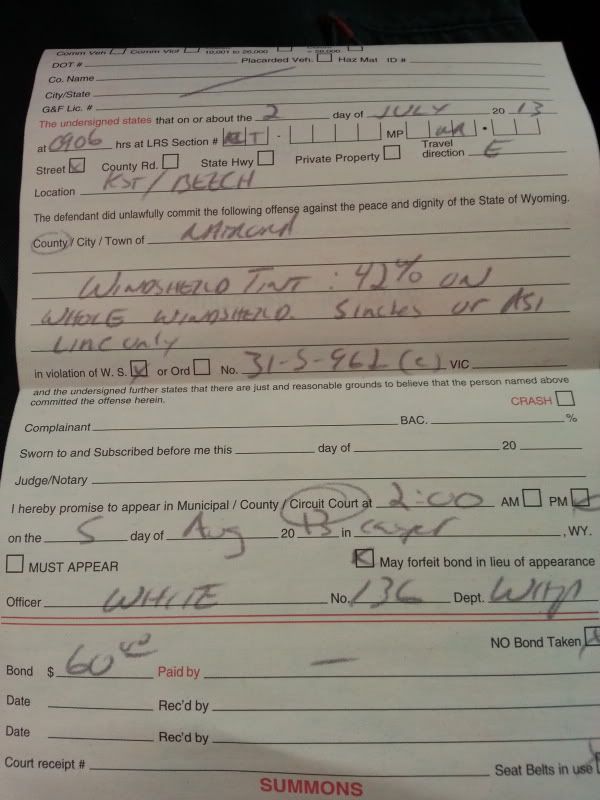 Comm Veh Comm Viol 10,001 to 26,000
DOT # Placarded Veh. Haz Mat ID #
Co. Name
City/State
G&F Lic. #
The undersigned states that on or about the 2 day of JULY 20 13
at 0906 hrs at LRS Section # - MP .
Street County Rd. State Hwy Private Property Travel direction E
Location K ST / BEECH
The defendant did unlawfully commit the following offense against the peace and dignity of the State of Wyoming.
County / City / Town of NATRONA
WINDSHEILD TINT : 42% ON
WHOLE WINDSHEILD. 5 inches or ASI
Line only
in violation of W. S. or Ord No. 31-5-962 (c) VIC
and the undersigned further states that there are just and reasonable grounds to believe that the person named above
committed the offense herein.
CRASH
Complainant BAC. %
Sworn to and Subscribed before me this day of 20
Judge/Notary
I hereby promise to appear in Municipal / County / Circuit Court at 2:00 AM PM
on the 5 day of Aug 20 13 in casper , WY.
MUST APPEAR May forfeit bond in lieu of appearance
Officer WHITE No. 136 Dept. WHP
NO Bond Taken
Bond $ 60 00 Paid by
Date Rec'd by
Date Rec'd by
Court receipt # Seat Belts in use
SUMMONS